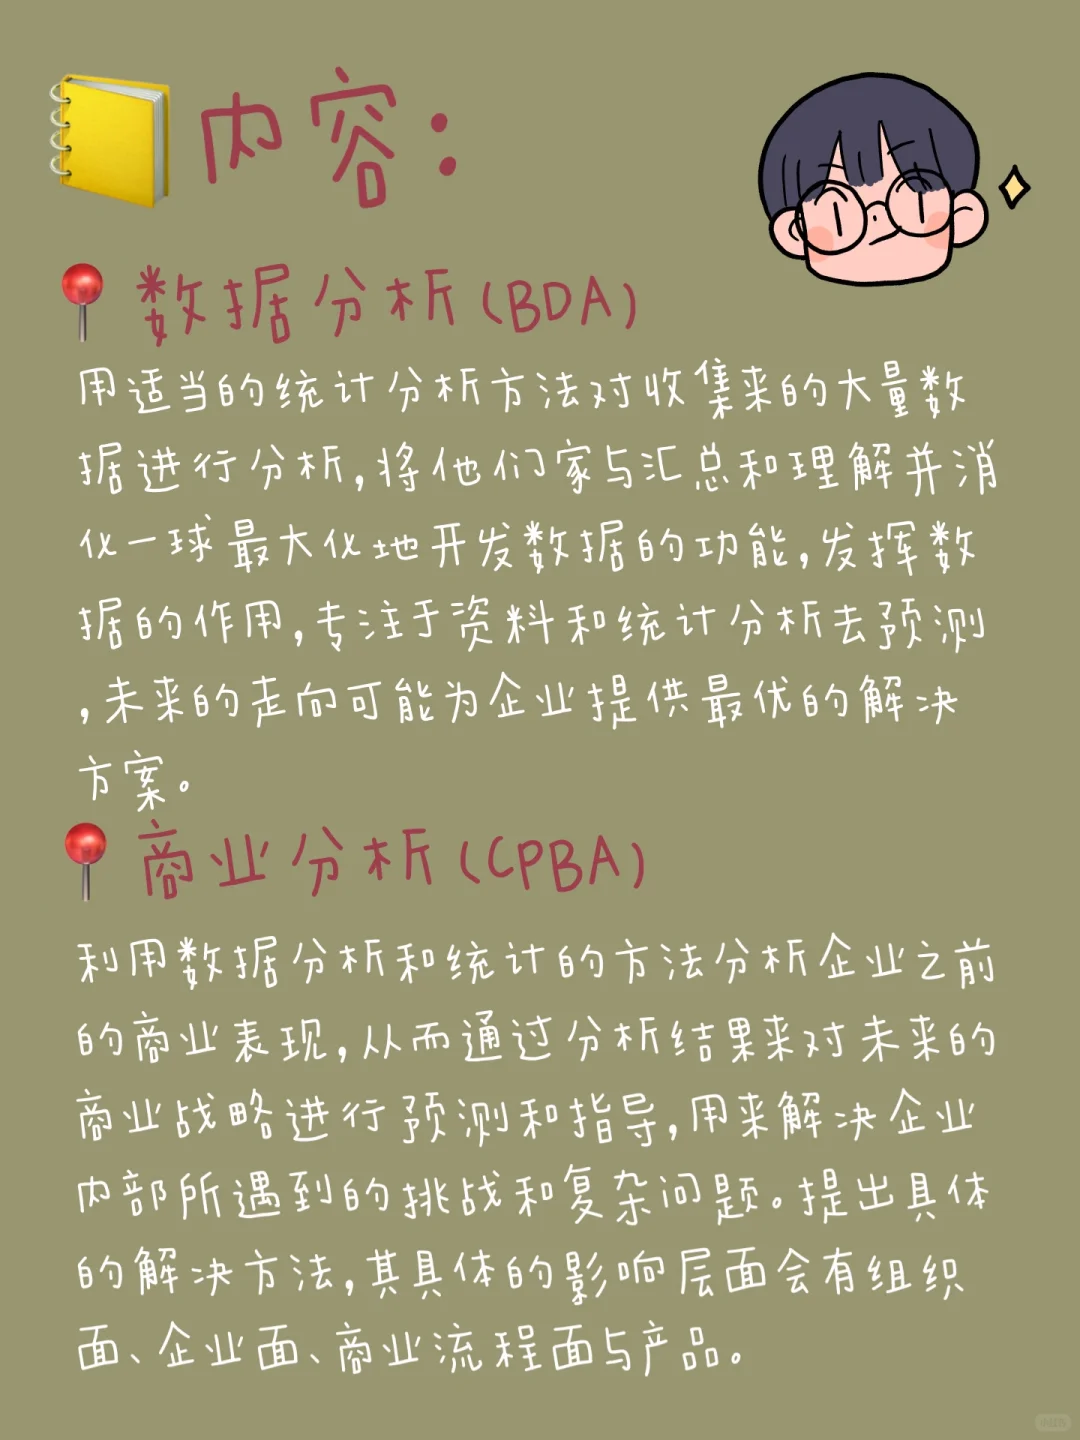 内容：
数据分析(BDA)
用适当的统计分析方法对收集来的大量数
据进行分析,将他们家与汇总和理解并消
化一球最大化地开发数据的功能,发挥数
据的作用,专注于资料和统计分析去预测
,未来的走向可能为企业提供最优的解决
方案。
商业分析(CPBA)
利用数据分析和统计的方法分析企业之前
的商业表现,从而通过分析结果来对未来的
商业战略进行预测和指导,用来解决企业
内部所遇到的挑战和复杂问题。提出具体
的解决方法,其具体的影响层面会有组织
面、企业面、商业流程面与产品。